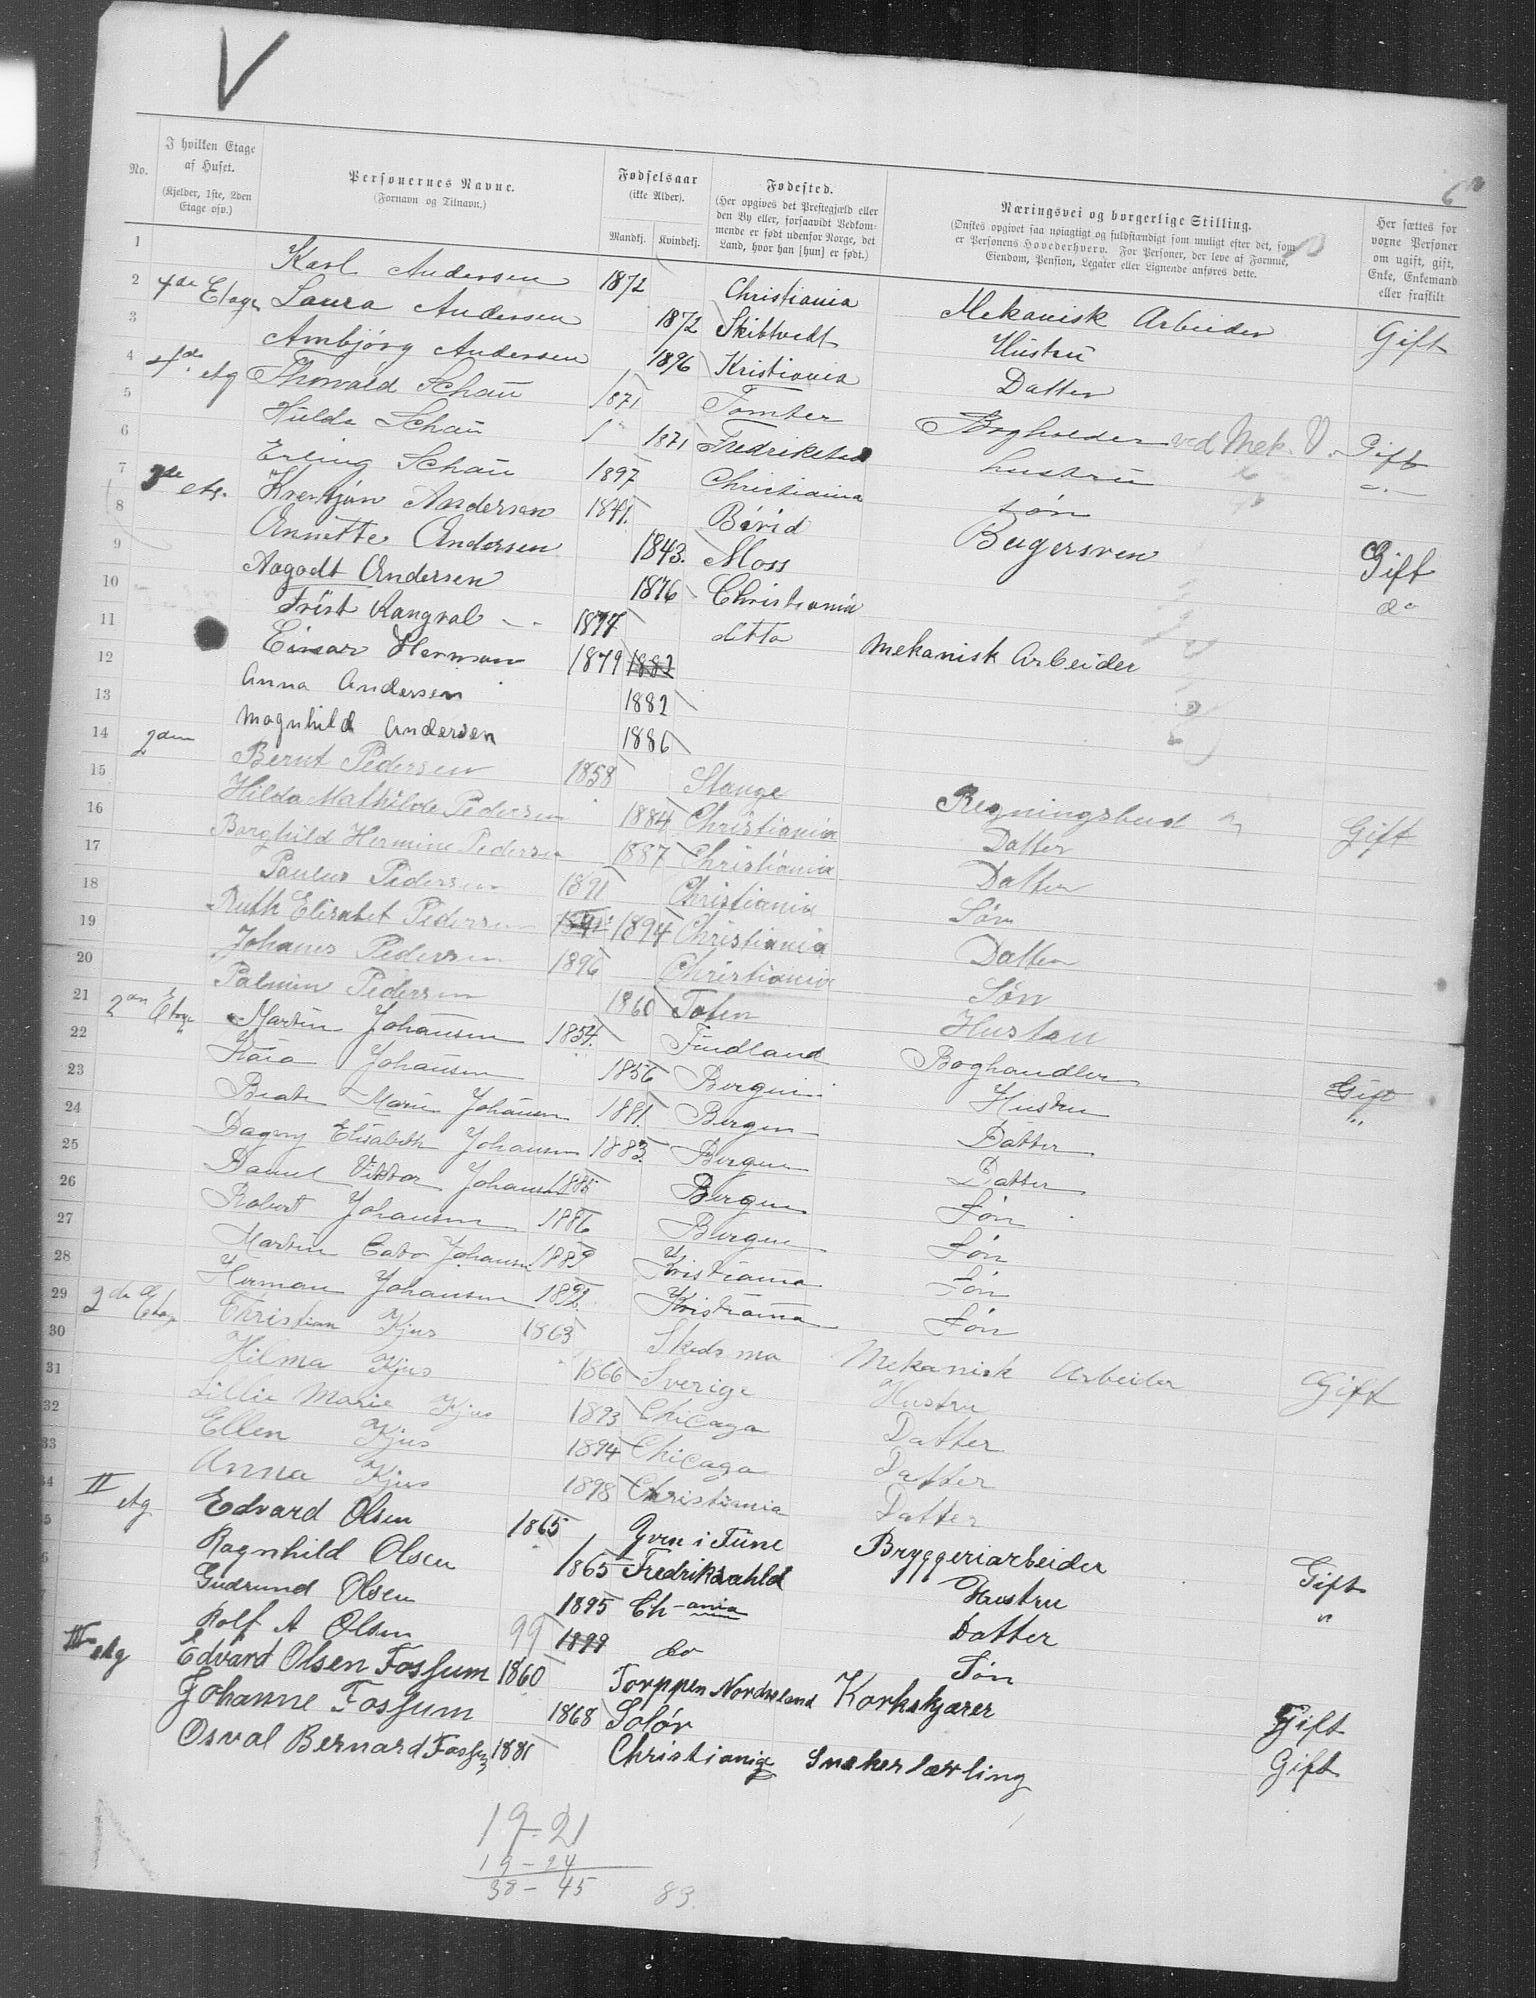 V
6
No.
I hvilken Etage af Huset. (Kjelder, 1ste, 2den Etage osv.)
Personernes Navne. (Fornavn og Tilnavn.)
Fødselsaar (ikke Alder). Mandkj. Kvindekj.
Fødested. (Her opgives det Prestegjæld eller den By eller, forsaavidt Vedkommende er født udenfor Norge, det Land, hvor han [hun] er født.)
Næringsvei og borgerlige Stilling. (Ønskes opgivet saa nøiagtigt og fuldstændigt som muligt efter det, som er Personens Hovederhverv. For Personer, der leve af Formue, Eiendom, Pension, Legater eller Lignende anføres dette.
Her sættes for vorne Personer om ugift, gift, Enke, Enkemand eller fraskilt
1 Karl Andersen 1872 Christiania Mekanisk Arbeider Gift
2 4de Etage Laura Andersen 1872 Skibtvedt Hustru
3 Ambjørg Andersen 1896 Kristiania Datter
4 4de etg Thorvald Schau 1871 Tomter Bogholder ved Mek. V. Gift
5 Hulda Schau 1871 Fredrikstad hustru
6 Erling Schau 1897 Christiania søn
7 3de etg. Andersen 1841. Bagersven Gift
8 Annette Andersen 1843. Moss do
9 Aagodt Andersen 1876 Christiania
10 1877 ditto Mekanisk Arbeider
11 Einar Herman 1879 1882
12 Anna Andersen 1882
13 Magnhild Andersen 1886
14 2den Bernt Pedersen 1858 Stange Regningsbud Gift
15 Hilda Mathilde Pedersen 1884 Christiania Datter
16 Borghild Hermine Pedersen 1887 Christiania Datter
17 Paulus Pedersen 1891 Christiania Søn
18 Ruth Elisabet Pedersen 1894 Christiania Datter
19 Johanes Pedersen 1896 Christiania Søn
20 Palmin Pedersen 1860 Toten Hustru
21 2den Etage Martin Johansen 1854. Findland Boghandler Gift
22 Kaia Johansen 1856 Bergen Hustru "
23 Beate Marie Johansen 1881. Bergen Datter
24 Dagny Elisabeth Johansen 1883. Bergen Datter
25 Daniel Viktor Johansen 1885 Bergen Søn
26 Robert Johansen 1886 Bergen Søn
27 Martin Cato Johansen 1889 Kristiania Søn
28 Herman Johansen 1892. Kristiania Søn
29 2de Etage Christian Kjus 1863 Skedsmo Mekanisk Arbeider Gift
30 Hilma Kjus 1866 Sverige Hustru
31 Lillie Marie Kjus 1893 Chicago Datter
32 Ellen Kjus 1894 Chicago Datter
33 Anna Kjus 1898 Christiania Datter
II etg Edvard Olsen 1865 Gven i Tune Bryggeriarbeider Gift
Ragnhild Olsen 1865 Fredrikshald Hustru "
Gudrund Olsen 1895 Ch-ania Datter
Rolf A Olsen 99 1899 do Søn
III etg Edvard Olsen Fossum 1860 Torppen Nordreland Korkskjærer Gift
Johanne Fossum 1868 Solør Gift
Osval Bernard Fossum 1881 Christiania Snekerlærling
19-21
19-24
38-45 83